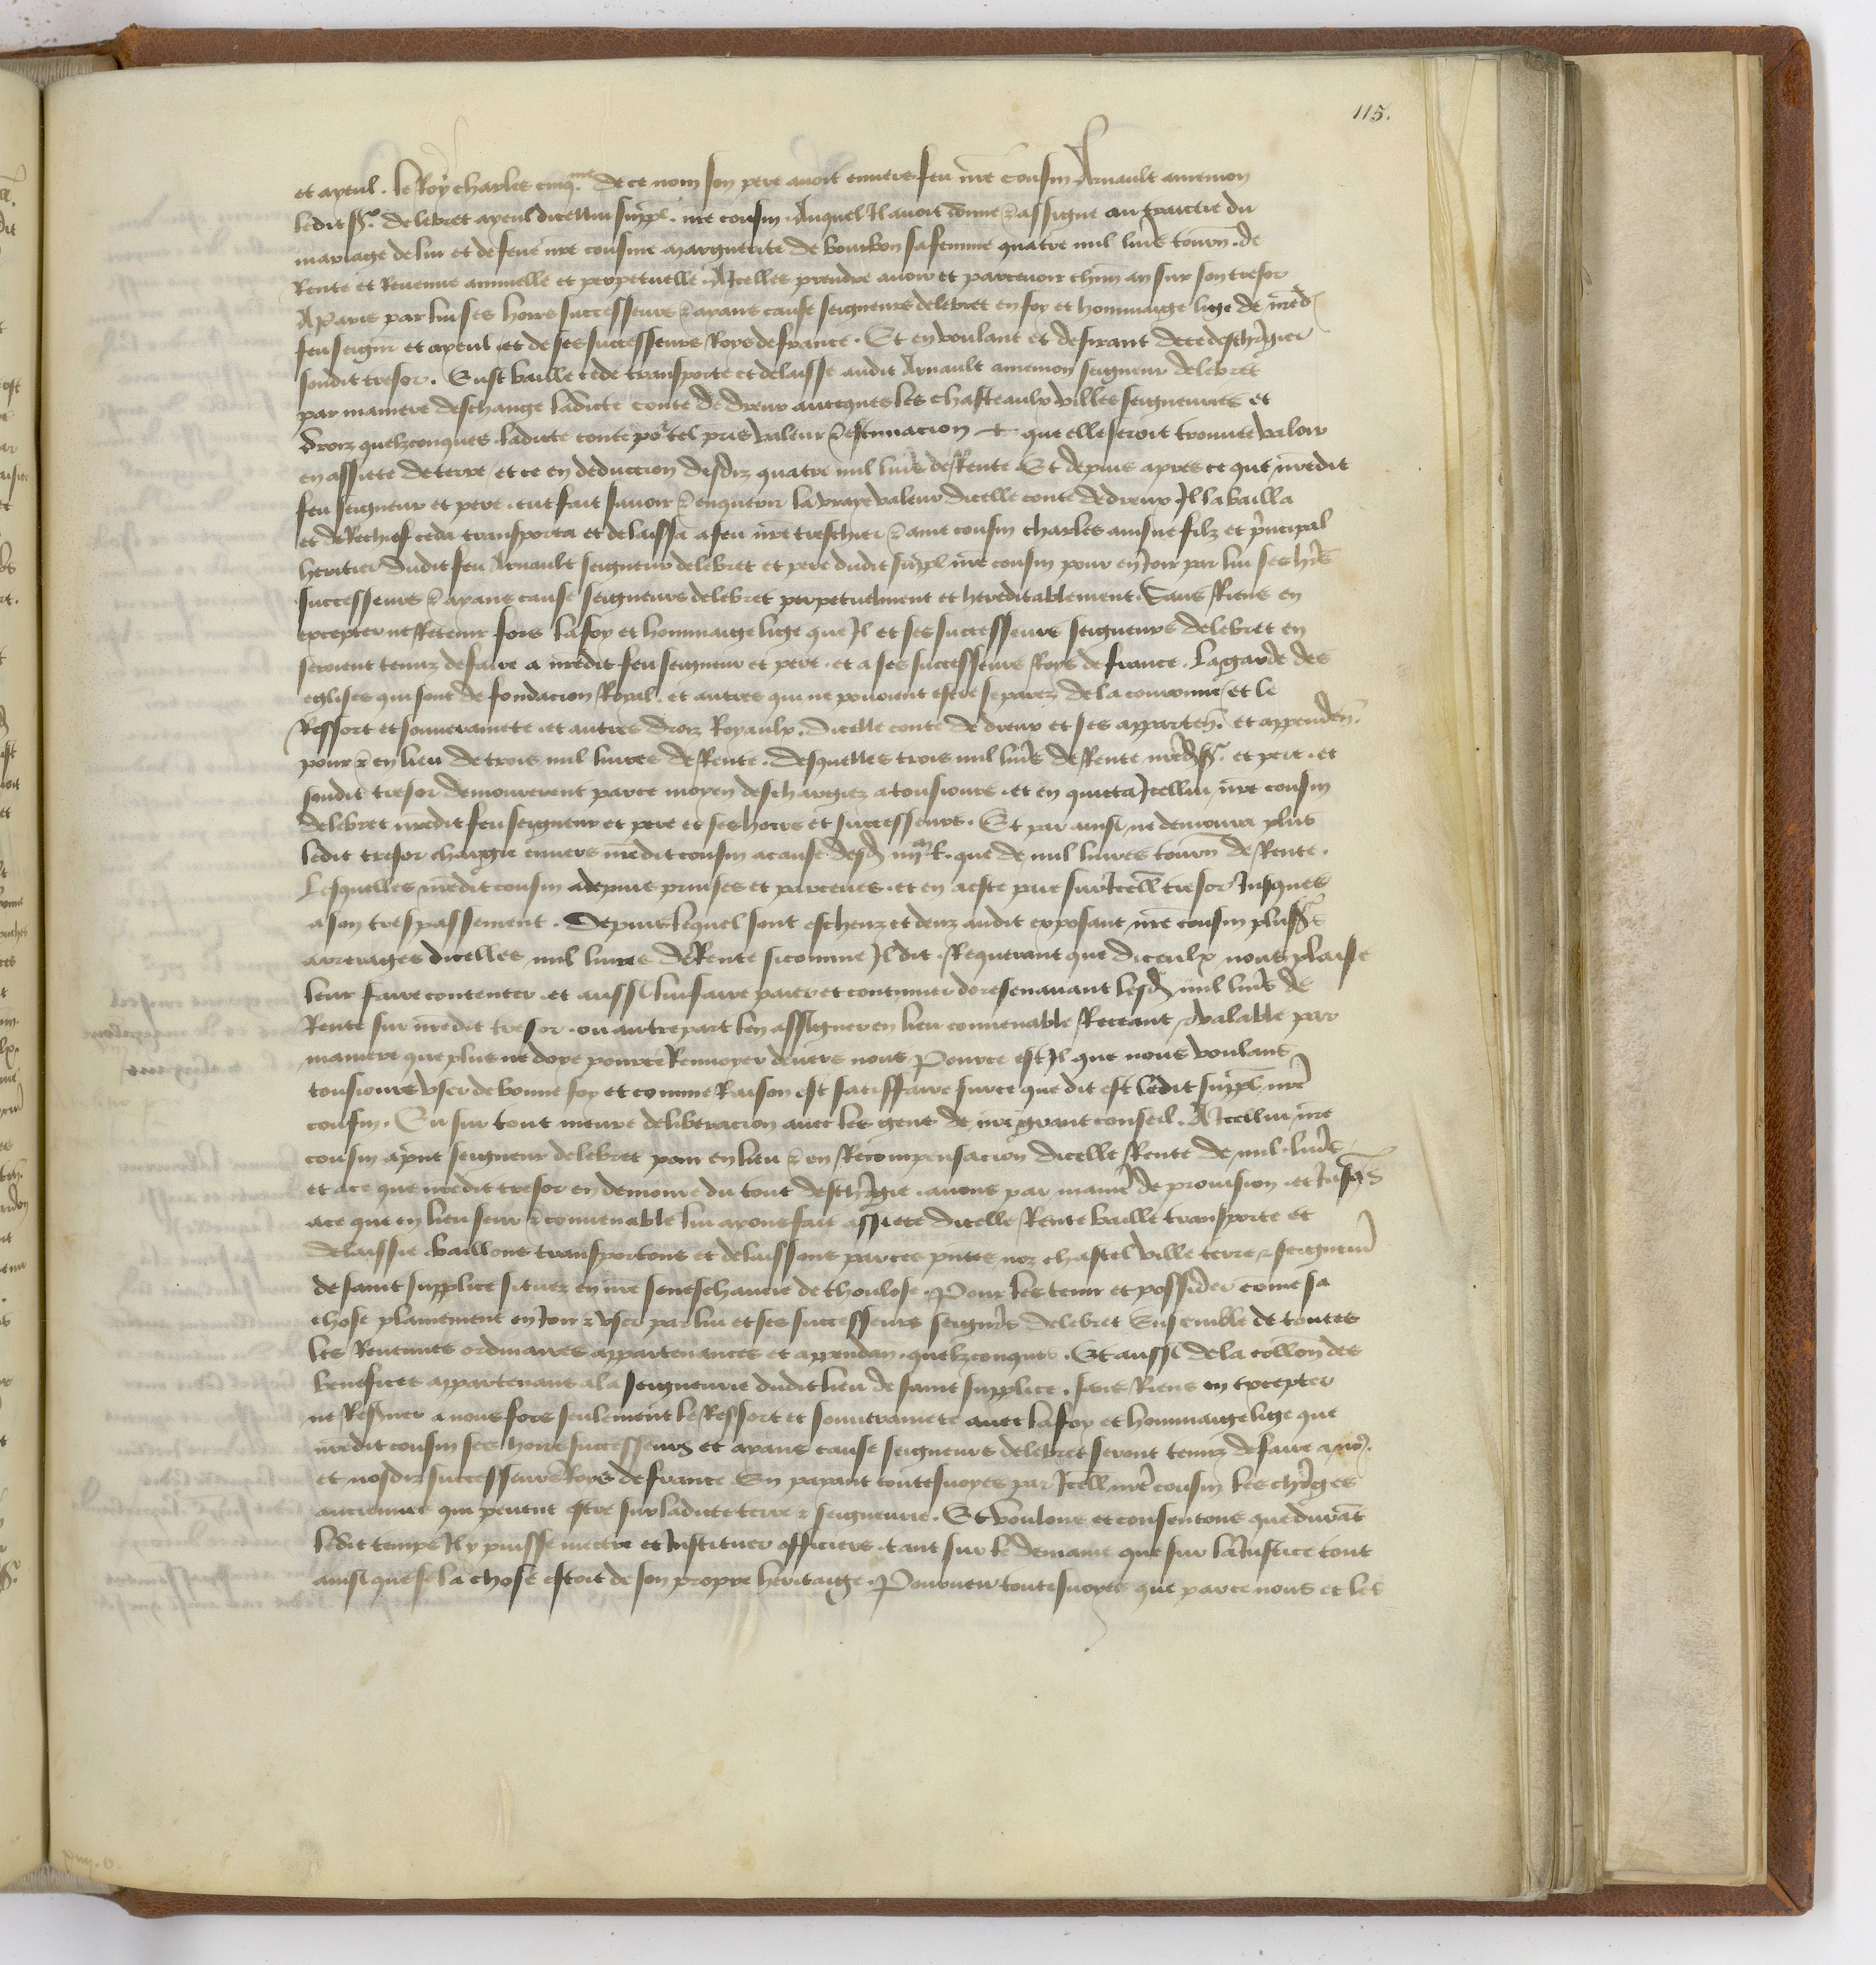 115.
et ayeul. le Roy charles cinq.me de ce nom son pere avoit envers feu nre cousin Arnault amenion
ledit sr. delebret ayeul dicellui suppl. nre cousin. Auquel Il avoit donne & assigne au traictie du
mariage de lui et de feue nre cousine marguerite de bourbon sa femme quatre mil livrs tourn. de
Rente et Revenue annuelle et perpetuelle. A Icelles prendre avoir et parcevoir chun an sur son tresor
A Paris par lui ses hoirs successeurs & ayans cause seigneurs delebret en foy et hommaige lige de nred
feu seignr et ayeul et de ses successeurs Roys de france. Et en voulant et desirant de ce deschrgier
sondit tresor. Eust baille cede transporte et delaisse audit Arnault amenion seigneur delebret
par maniere deschange ladicte conte de dreux avecques les chasteaulx villes seigneuries et
droiz quelzconques ladicte conte por tel pris valeur & estimacion que elle seroit trouvee valoir
en assiete de terre et ce en deduccion desdiz quatre mil livrs de Rente Et depuis apres ce que nredit
feu seigneur et pere. eut fait savoir & enquerir la vraye valeur dicelle conte de dreux Il la bailla
et de Rechief ceda transporta et delaissa a feu nre treschier & ame cousin charles ainsne filz et principal
heritier dudit feu Arnault seigneur delebret et pere dudit suppl nre cousin pour en Joir par lui ses hrs
successeurs & ayans cause seigneurs delebret perpetuelment et hereditablement. Sans Riens en
excepter ne Retenir fors la foy et hommaige lige que Il et ses successeurs seigneurs delebret en
seroient tenuz de faire a nredit feu seigneur et pere. et a ses successeurs Roys de france. La garde des
eglises qui sont de fondacion Royal. et autres qui ne povoient estre separez de la couronne et le
Ressort et souverainete et autres droiz Royaulx. dicelle conte de dreux et ses apparten. et appenden.
pour & en lieu de trois mil livres de Rente. desquelles trois mil livrs de Rente nred sr. et pere. et
sondit tresor demourerent par ce moyen deschargiez a tousiours. et en quicta Icellui nre cousin
delebret nredit feu seigneur et pere et ses hoirs et successeurs. Et par ainsi ne demoura plus
ledit tresor chargie envers nredit cousin a cause desd iiijm l. que de mil livres tourn de Rente.
Lesquelles nredit cousin a depuis prinses et parceues. et en a este paie sur Icell tresor Jusques
a son trespassement. Depuis lequel sont escheuz et deuz audit exposant nre cousin plusrs
arrerages dicelles mil livres de Rente si comme Il dit. Requerant que diceulx nous plaise
leur faire contenter. et aussi lui faire paier et continuer doresenavant lesd mil livrs de
Rente sur nredit tresor. ou autrepart len assigner en lieu convenable Receant & valable par
maniere que plus ne doye pour ce Renvoyer devers nous Pource est Il que nous voulans
tousiours user de bonne foy et comme Raison est satisffaire sur ce que dit est ledit suppl nre
cousin. Eu sur tout meure deliberacion avec les gens de nre grant conseil. A Icellui nre
cousin aprnt seigneur delebret pour en lieu & en Recompensacion dicelle Rente de mil livrs
et a ce que nredit tresor en demoure du tout deschrgie. avons par maniere de provision et Jusqs
a ce que en lieu seur & convenable lui ayons fait assiete dicelle Rente baille transporte et
delaissie. baillons transportons et delaissons par ces pntes noz chastel ville terre & seigneurie
de saint supplice situez en nre seneschaucie de thoulose. Pour les tenir et possider come sa
chose plainement en Joir & user par lui et ses successeurs seignrs delebret Ensemble de toutes
les Revenues ordinaires appartenances et appendan. quelzconques. Et aussi de la collon des
benefices appartenans a la seigneurie dudit lieu de saint supplice. sans Riens en excepter
ne Reserver a nous fors seulement le Ressort et souverainete avec la foy et hommaige lige que
nredit cousin ses hoirs successeurs et ayans cause seigneurs delebret seront tenuz de faire a nos.
et nosdiz successeurs Roys de france En payant toutesvoyes par Icell nre cousin les chrges
anciennes qui pevent estre sur ladicte terre & seigneurie. Et voulons et consentons que durant
ledit temps Il y puisse mectre et Instituer officiers. tant sur le demaine que sur la Justice tout
ainsi que se la chose estoit de son propre heritaige. Pourveu toutesvoyes que par ce nous et les